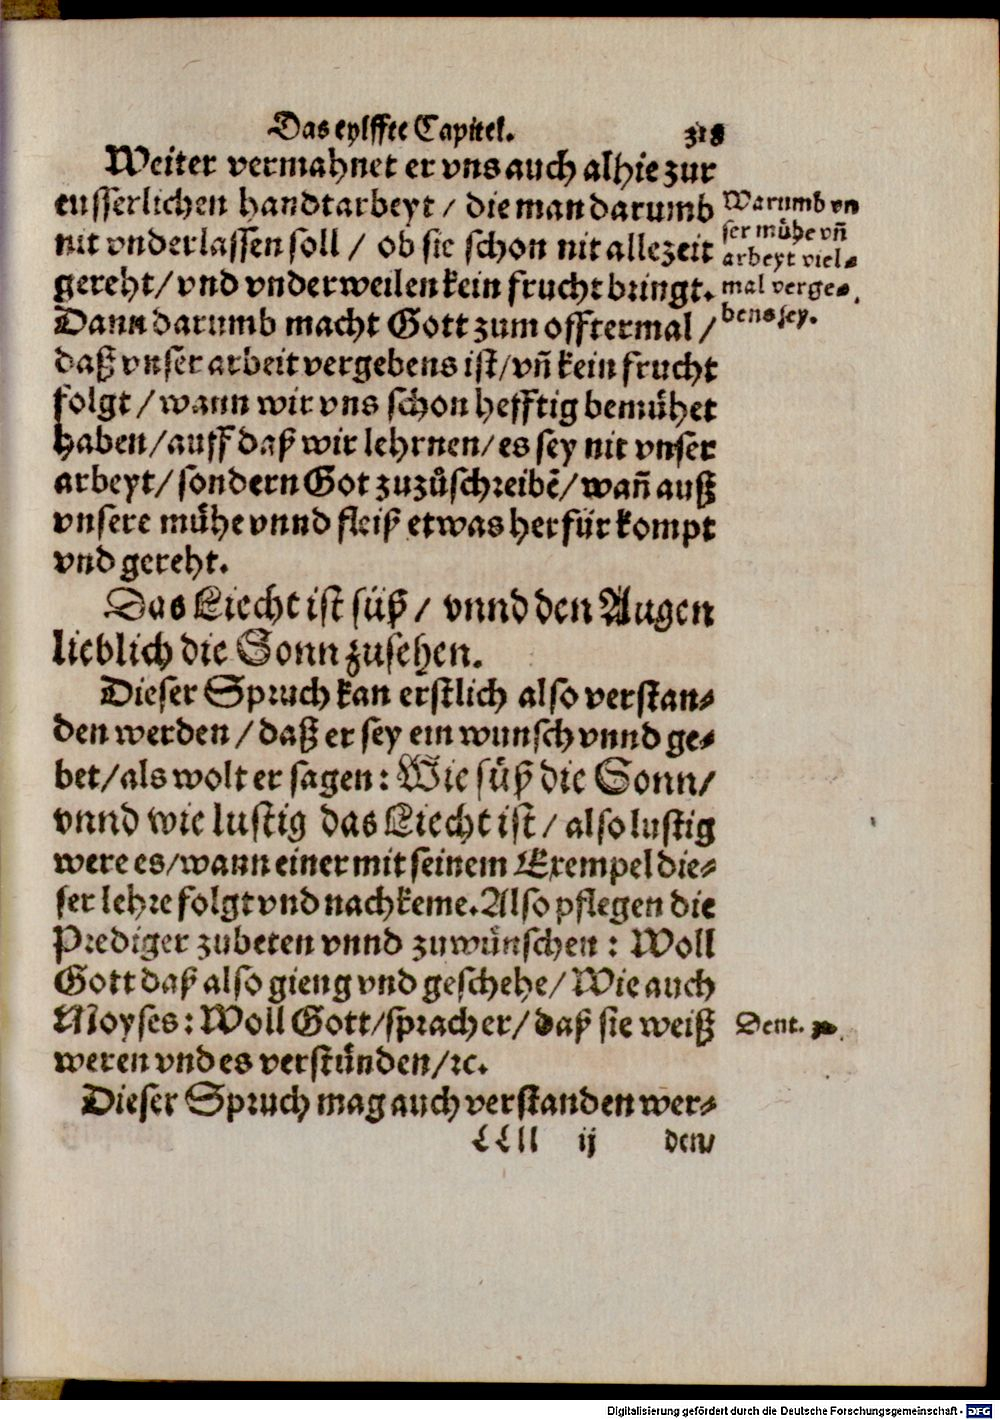 Das eylffte Capitel. 318
Weiter vermahnet er vns auch alhie zur
eusserlichen handtarbeyt / die man darumb
nit vnderlassen soll / ob sie schon nit allezeit
gereht / vnd vnderweilen kein frucht bringt.
Dann darumb macht Gott zum offtermal /
daß vnser arbeit vergebens ist / vñ kein frucht
folgt / wann wir vns schon hefftig bemühet
haben / auff daß wir lehrnen / es sey nit vnser
arbeyt / sondern Got zuzůschreibē / wañ auß
vnsere mühe vnnd fleiß etwas herfür kompt
vnd gereht.
Warumb vn
ser mühe vñ
arbeyt viel-
mal verge-
bens sey.
Das Liecht ist süß / vnnd den Augen
lieblich die Sonn zusehen.
Dieser Spruch kan erstlich also verstan-
den werden / daß er sey ein wunsch vnnd ge-
bet / als wolt er sagen: Wie süß die Sonn /
vnnd wie lustig das Liecht ist / also lustig
were es / wann einer mit seinem Exempel die-
ser lehre folgt vnd nachkeme. Also pflegen die
Prediger zubeten vnnd zuwünschen: Woll
Gott daß also gieng vnd geschehe / Wie auch
Moyses: Woll Gott / sprach er / daß sie weiß
weren vnd es verstünden / ꝛc.
Deut.
Dieser Spruch mag auch verstanden wer-
LLll ij den /
Digitalisierung gefördert durch die Deutsche Forschungsgemeinschaft - DFG